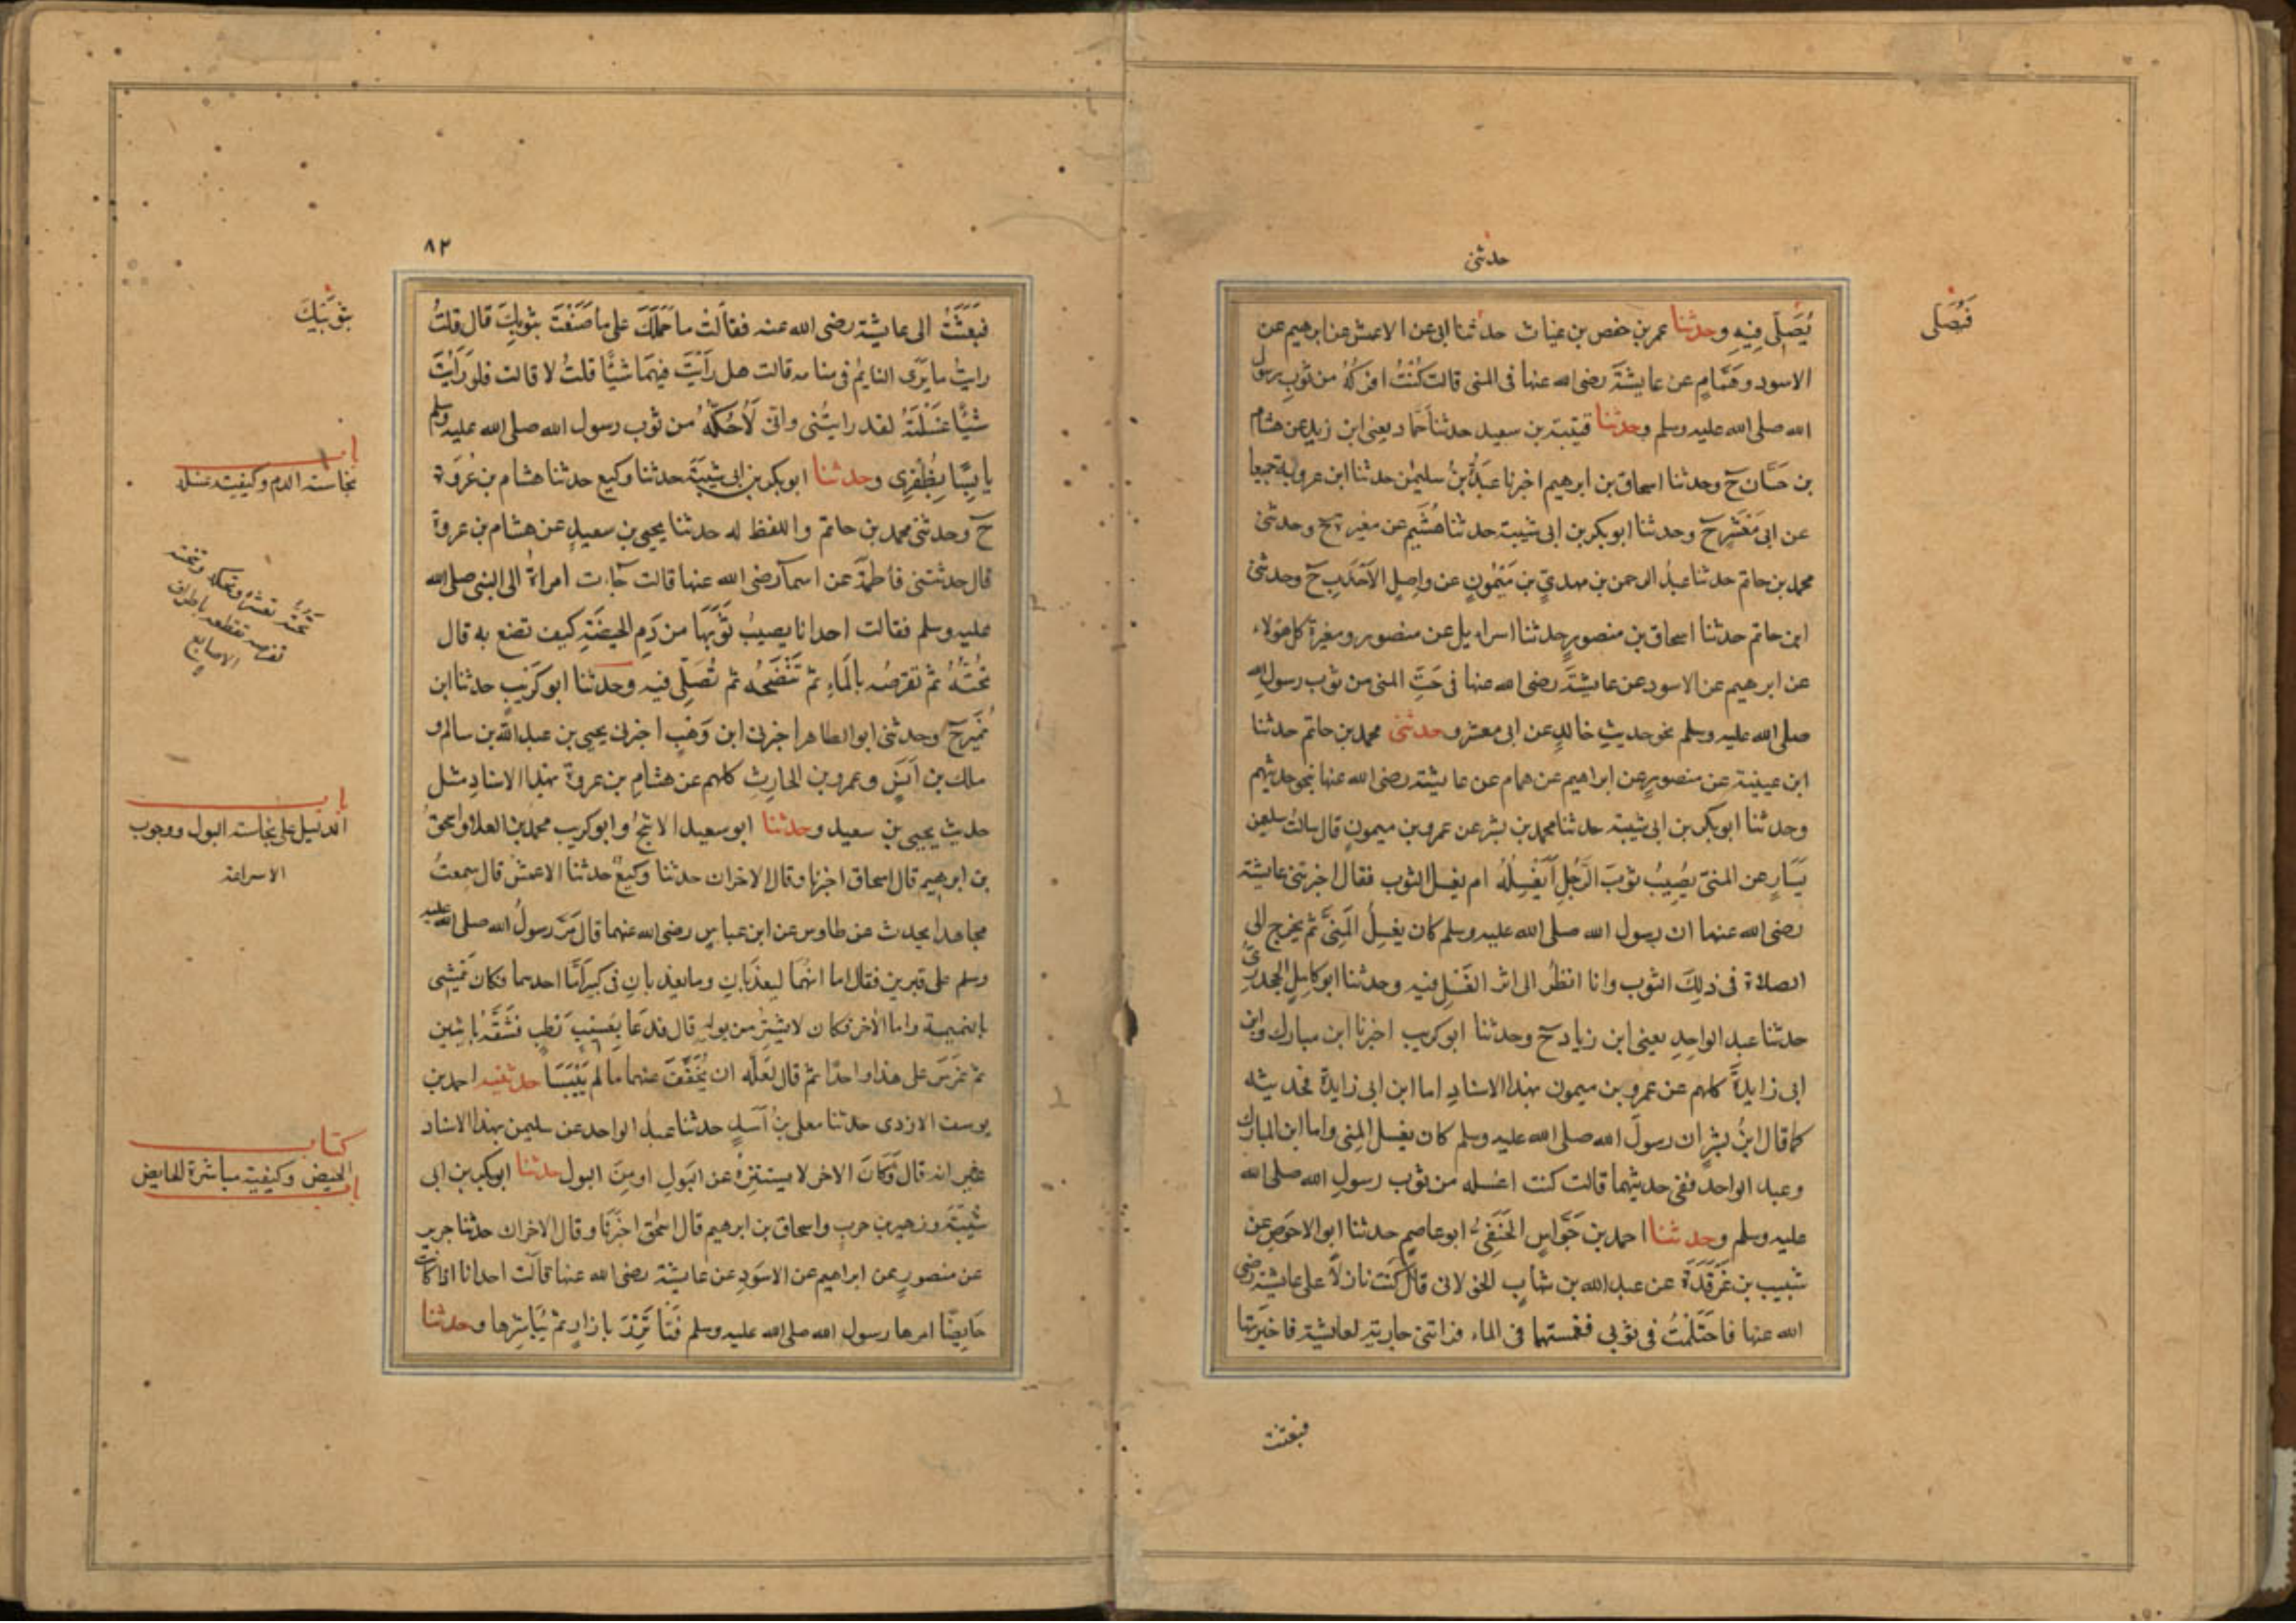 حدثنى
فيُصَلى
يُصَلِّى فِيهِ وحدثنا عمر بن حفص بن غياث حدثنا ابى عن الاعمش عن ابرهيم عن
الاسود وهَمَّامٍ عن عايشةَ رضى الله عنها فى المنى قالت كُنْتُ افركُهُ من ثوبِ رسول
الله صلى الله عليه وسلم وحدثنا قتيبة بن سعيد حدثنا حمّاد يعنى ابن زيد عن هشام
بن حَسَّان ح وحدثنا اسحاق بن ابرهيم اخبرنا عَبدَةُ بنُ سليمٰن حدثنا ابن عروبة جميعا
عن ابى مَعْشَرٍ ح وحدثنا ابوبكر بن ابى شيبة حدثنا هُشَيم عن مغيرة ح وحدثنى
محمد بن حاتم حدثنا عبدُ الرحمن بن مهدىٍّ بن مَيْمُونٍ عن واصِلٍ الاَحْدَبِ ح وحدثنى
ابن حاتم حدثنا اسحاق بن منصورٍ حدثنا اسرايل عن منصور ومغيرة كل هؤلاء
عن ابرهيم عن الاسود عن عايشةَ رضى الله عنها فى حَتِّ المنى من ثوب رسولِ الله
صلى الله عليه وسلم نحو حديثِ خالدٍ عن ابى معشر وحدثنى محمد بن حاتم حدثنا
ابن عيينة عن منصورٍ عن ابراهيم عن همام عن عايشة رضى الله عنها بنحو حديثهم
وحدثنا ابوبكر بن ابى شيبة حدثنا محمد بن بشر عن عمرو بن ميمونٍ قال سالتُ سليمن
يَسَارٍ عن المنىّ يُصِيبُ ثوبَ الرَّجُلِ اَيَغْسِلُهُ ام يغسل الثوب فقال اخبرتنى عايشة
رضى الله عنها ان رسول الله صلى الله عليه وسلم كان يغسِلُ المَنِىَّ ثم يخرج الى
الصلاة فى ذلِكَ الثوب وانا انظُر الى اثر الغَسْلِ فيه وحدثنا ابو كامِلٍ الجحدرِىُّ
حدثنا عبد الواحِدِ يعنى ابن زياد ح وحدثنا ابو كريب اخبرنا ابن مبارك وابن
ابى زايدةَ كلهم عن عمرو بن ميمون بهذا الاسنادِ اما ابن ابى زايدة فحديثه
كما قال ابنُ بِشْرٍ ان رسولَ الله صلى الله عليه وسلم كان يغسل المنى واما ابن المبارك
وعبد الواحد ففى حديثهما قالت كنت اغسله من ثوب رسولِ الله صلى الله
عليه وسلم وحدثنا احمد بن جَوَّاسٍ الحَنَفِىُّ ابو عاصمٍ حدثنا ابو الاحوَصِ عن
شبيب بن غَرقَدَةَ عن عبد الله بن شهابٍ الخولانى قال كنت نازلاً على عايشة رضى
الله عنها فاحتَلَمْتُ فى ثوبى فغمستهما فى الماء فراتنى جارية لعايشة فاخبَرَتها
فبعثت
٨٢
بثوبَيْكَ
فبَعَثَتْ الى عايشة رضى الله عنه فقالت ما حَمَلَكَ على ما صَنَعْتَ بثوبِكَ قال قلتُ
رايتُ ما يَرَى النايمُ فى منامه قالت هل رَاَيْتَ فيهمَا شيًّا قلتُ لا قالت فلو رَاَيْتَ
شيًّا غسَلْتَهُ لقد رايتُنى وانى لَاَحُكّهُ من ثوب رسول الله صلى الله عليه وسلم
يابِسًا بِظُفْرِى وحدثنا ابو بكر بن ابى شيبَةَ حدثنا وكيع حدثنا هشام بن عُروَة
ح وحدثنى محمد بن حاتم واللفظ له حدثنا يحيى بن سعيدٍ عن هشام بن عروة
قال حدثتنى فاطمةُ عن اسمآ رضى الله عنها قالت جآءت امراةٌ الى النبى صلى الله
عليه وسلم فقالت احدانا يصيبُ ثَوْبَهَا من دَمِ الحيضَةِ كيف تصنع به قال
تَحُتُّهُ ثم تقرصُه بالمَاءِ ثم تَنْضَحُه ثم تُصَلِّى فيه وحدثنا ابو كَرَيبٍ حدثنا ابن
نُمَيرٍ ح وحدثنى ابو الطاهر اخبرنى ابن وَهْبٍ اخبرنى يحيى بن عبد الله بن سالم و
ملك بن اَنَسٍ وعمرو بن الحارثِ كلهم عن هشامِ بن عروة بهذا الاسنادِ مثل
حديث يحيى بن سعيد وحدثنا ابو سعيد الاشجُّ وابو كريب محمد بن العلاء واسحقُ
بن ابرهيم قال اسحاق اخبرنا وقال الاخران حدثنا وكيعٌ حدثنا الاعمش قال سمعتُ
مجاهدا يحدث عن طاوس عن ابن عباسٍ رضى الله عنهما قال مَرَّ رسولُ الله صلى الله عليه
وسلم على قبرين فقال اما انّهُما ليعذبَانِ وما يعذبانِ فى كبيرٍ اَمَّا احدهما فكان يَمْشى
بالنميمة واما الآخر فكان لا يستترُ من بوله قال فدعَا بِعَسِيبٍ رَطبٍ فشَقَّهُ باثنين
ثم غرَسَ على هذا واحدًا ثم قال لعَلّه ان يُخَفَّفَ عنهما مالم يَيْبَسَا حدثنيه احمد بن
يوسف الازدى حدثنا معلى بنُ اَسَدٍ حدثنا عبدُ الواحد عن سليمن بهذا الاسناد
غير انه قال وَكَانَ الاخر لا يستنزِهُ عن البَولِ او مِنَ البول حدثنا ابو بكر بن ابى
شَيْبَةَ وزهير بن حربٍ واسحاق بن ابرهيم قال اسْحٰق اخبَرَنَا وقال الاخران حدثنا جرير
عن منصورٍ عن ابراهيم عن الاسوَدِ عن عايشة رضى الله عنها قالَت احدانا اذا كانت
حَايِضًا امرها رسول الله صلى الله عليه وسلم فَتَاتَزِرُ بازارٍ ثم يُبَاشِرها وحدثنا
باب
نجاسة الدم وكيفية غسله
تحته تقشره وتحكه وتنحته
تقرصه تقطعه باطراف
الاصابع
باب
الدليل على نجاسة البول ووجوب
الاستبراء منه
كتاب
الحيض وكيفية مباشرة الحايض
باب